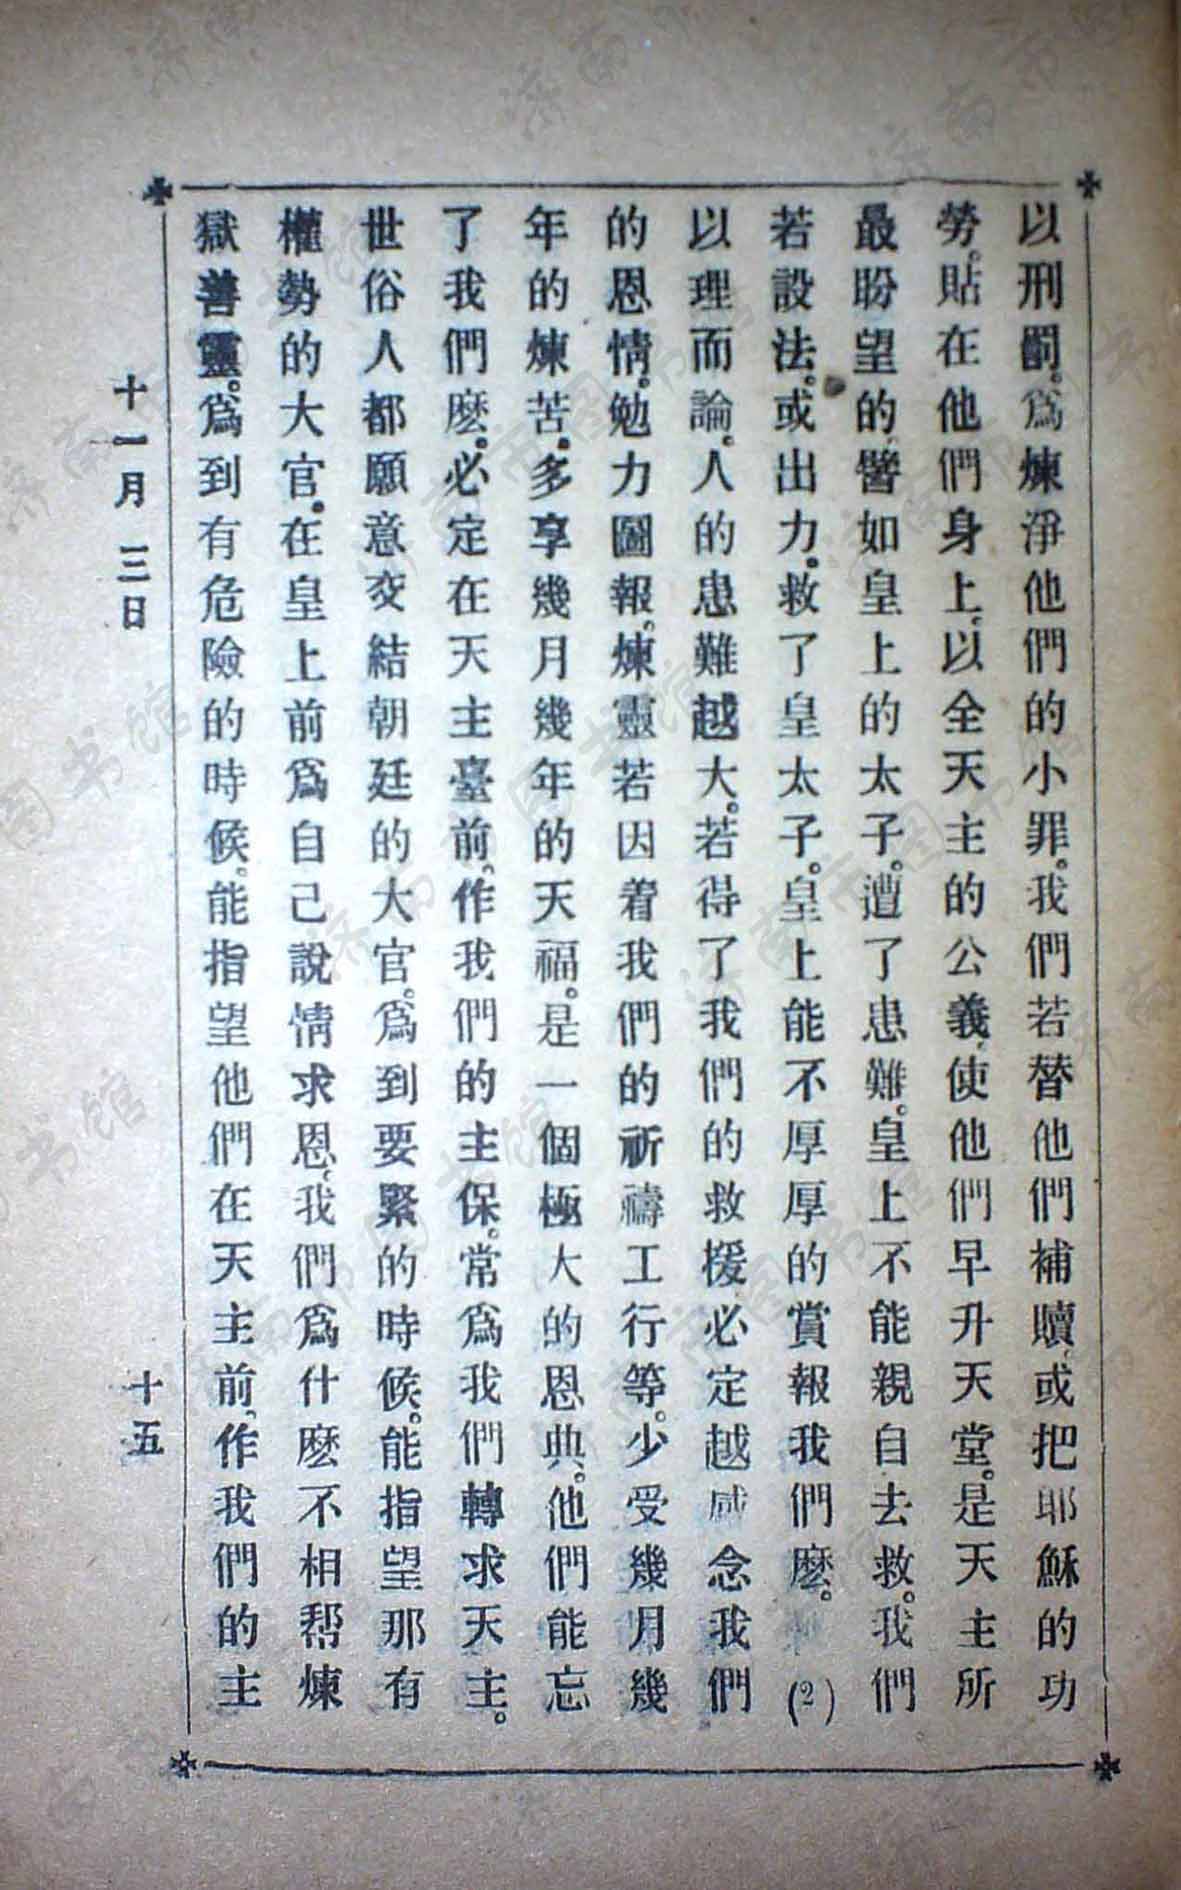 以刑罰。爲煉淨他們的小罪。我們若替他們補贖、或把耶穌的功
勞。貼在他們身上、以全天主的公義、使他們早升天堂。是天主所
最盼望的、譬如皇上的太子。遭了患難。皇上不能親自去救。我們
若設法。或出力。救了皇太子。皇上能不厚厚的賞報我們麽。(2)
以理而論。人的患難越大。若得了我們的救援必定越感念我們
的恩情。勉力圖報。煉靈若因着我們的祈禱工行等。少受幾月幾
年的煉苦。多享幾月幾年的天福。是一個極大的恩典。他們能忘
了我們麽。必定在天主臺前。作我們的主保。常爲我們轉求天主。
世俗人都願意交結朝廷的大官。爲到要緊的時候。能指望那有
權勢的大官。在皇上前爲自己說情求恩、我們爲什麽不相帮煉
獄善靈。爲到有危險的時候。能指望他們在天主前、作我們的主
十一月 三日 十五